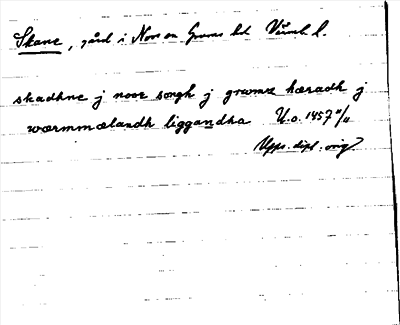 Skane, gård i Nor sn Grums hd Värml l.
skadhne j noor songh j grwmx hæradh j
wærmmælandh liggandha U.o. 1457 11/11
Upps. dipl. orig.